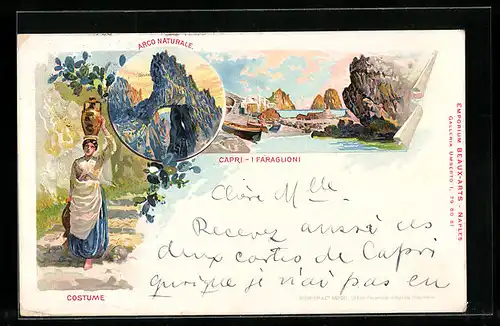 ARCO NATURALE.
CAPRI - I FARAGLIONI
COSTUME
EMPORIUM BEAUX-ARTS - NAPLES
GALLERIA UMBERTO I, 79 80 81
Chère Mlle
Recevez aussi ces
deux cartes de Capri
quoique je n'ai pas eu